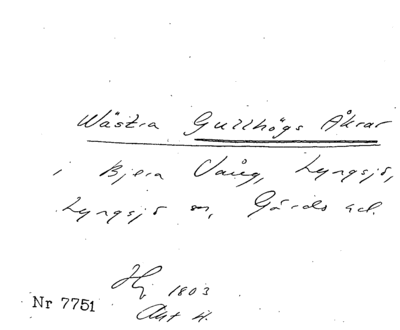 Wästra Gullhögs Åkrar
i Bjera Vång, Lyngsjö,
Lyngsjö sn, Gärds hd.
Hj 1803
Akt 4.
Nr 7751